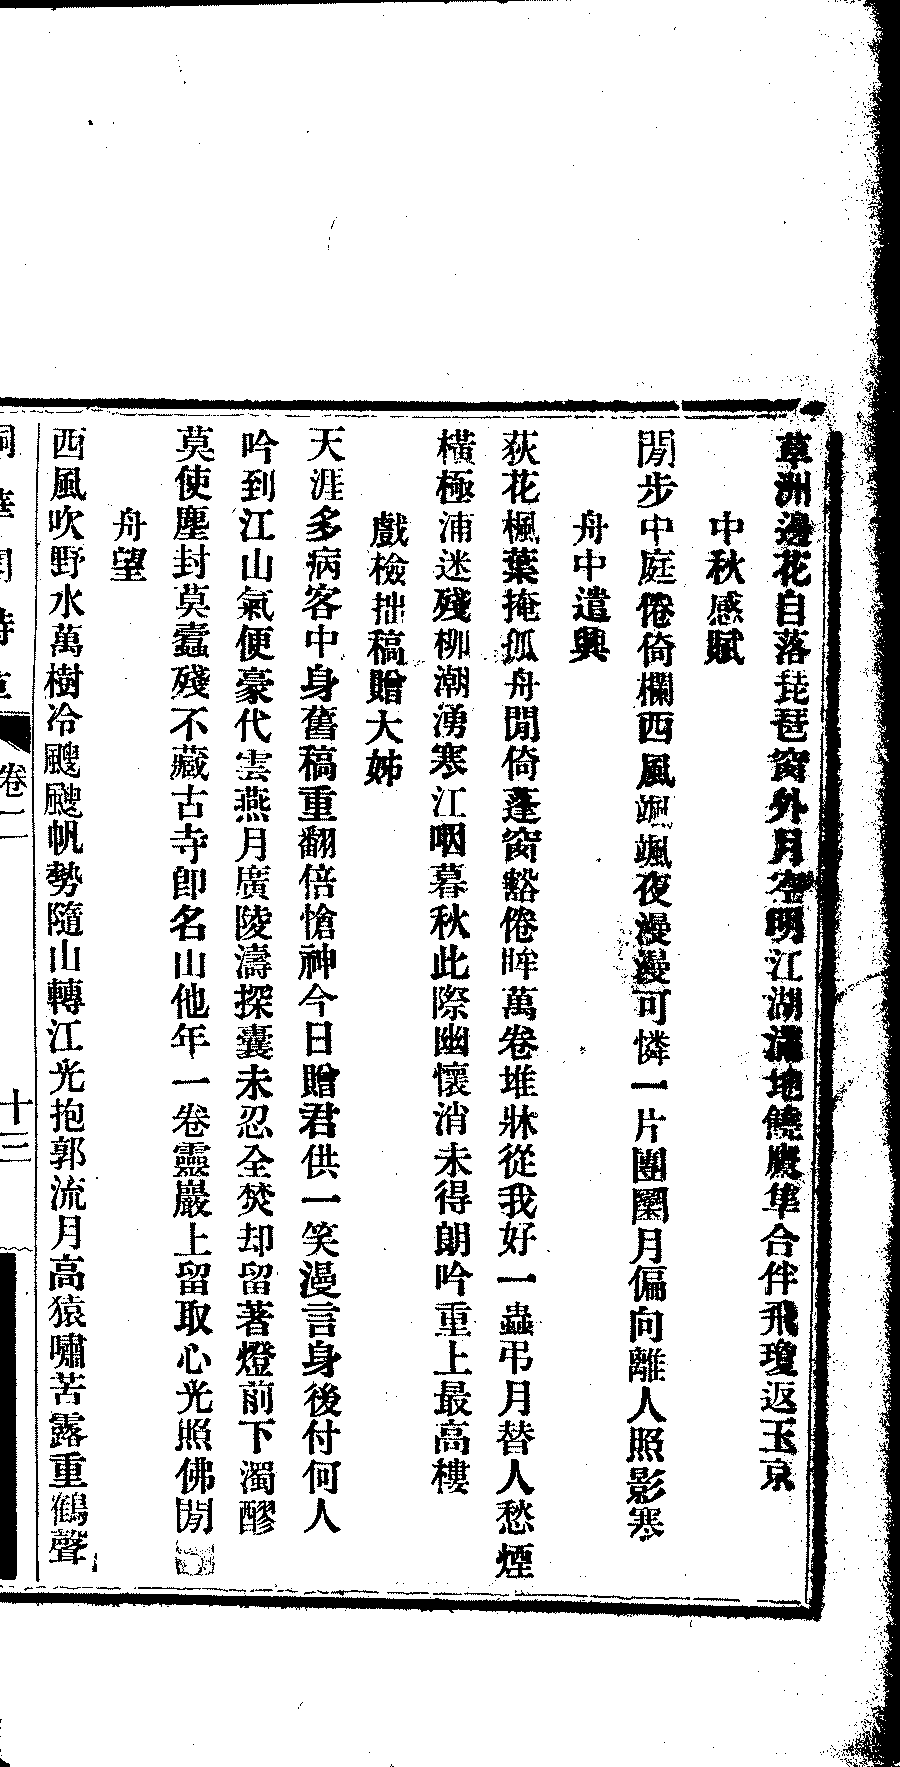 草洲邊花自落琵琶窗外月空明江湖滿地饒賡隼合伴飛瓊返玉京
中秋感賦
閒步中庭倦倚欄西風颯颯夜漫漫可憐一片團圞月偏向離人照影寒
舟中遣興
荻花楓葉掩孤舟閒倚蓬窗豁倦眸萬卷堆牀從我好一蟲弔月替人愁煙
橫極浦迷殘柳潮湧寒江咽暮秋此際幽懷消未得朗吟重上最高樓
戲檢拙稿贈大姊
天涯多病客中身舊稿重翻倍愴神今日贈君供一笑漫言身後付何人
吟到江山氣便豪代雲燕月廣陵濤探囊未忍全焚却留著燈前下濁醪
莫使塵封莫蠹殘不藏古寺卽名山他年一卷靈巖上留取心光照佛閒
舟望
西風吹野水萬樹冷颼颼帆勢隨山轉江光抱郭流月高猿嘯苦露重鶴聲
卷二
十三